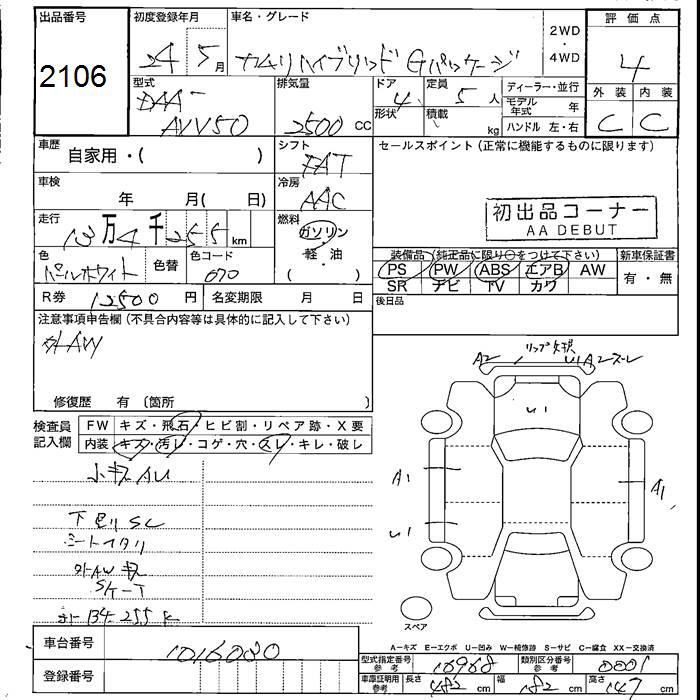 出品番号
2106
初度登録年月
24 5月
車名・グレード
カムリハイブリッド Gパッケージ
2WD
・
4WD
評価点
4
外装 内装
C C
型式
DAA-
AVV50
排気量
2500 CC
ドア 4
形状
定員 5人
積載 kg
ディーラー・並行
モデル年式 年
ハンドル 左・右
車歴 自家用・( )
シフト FAT
セールスポイント(正常に機能するものに限ります)
車検 年 月( 日)
冷房 AAC
初出品コーナー
AA DEBUT
走行 13万4千255km
燃料 ガソリン
軽・油
( )
色 パールホワイト 色替 色コード 070
装備品(純正品に限り○をつけて下さい)
PS PW ABS エアB AW
SR ナビ TV カワ
新車保証書
有・無
R券 12500円 名変期限 月 日
後日品
注意事項申告欄(不具合内容等は具体的に記入して下さい)
外AW
修復歴 有(箇所 )
検査員
記入欄
FW キズ・飛石・ヒビ割・リペア跡・X要
内装 キズ・汚レ・コゲ・穴・スレ・キレ・破レ
小キズAU
下廻りSC
シートヘタリ
外AWキズ
SケーT
メーター134.255K
A2 リップ欠損 U1A2スレ
U1
A1
U1
A1
スペア
A-キズ E-エクボ U-凹み W-補修跡 S-サビ C-腐食 XX-交換済
車台番号 1016080
登録番号
型式指定番号 参考 16968
類別区分番号 参考 0001
車庫証明用 参考 長さ 482cm 幅 182cm 高さ 147cm